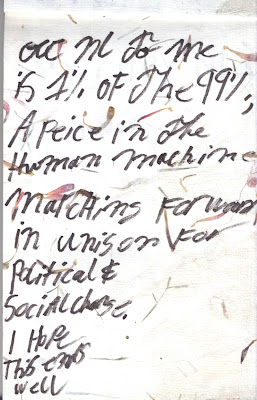 occ to me
is 1% of the 99%,
A Peice in the
Human machine
marching forward
in unison for
Political &
Social change.
I Hope
This ends
well